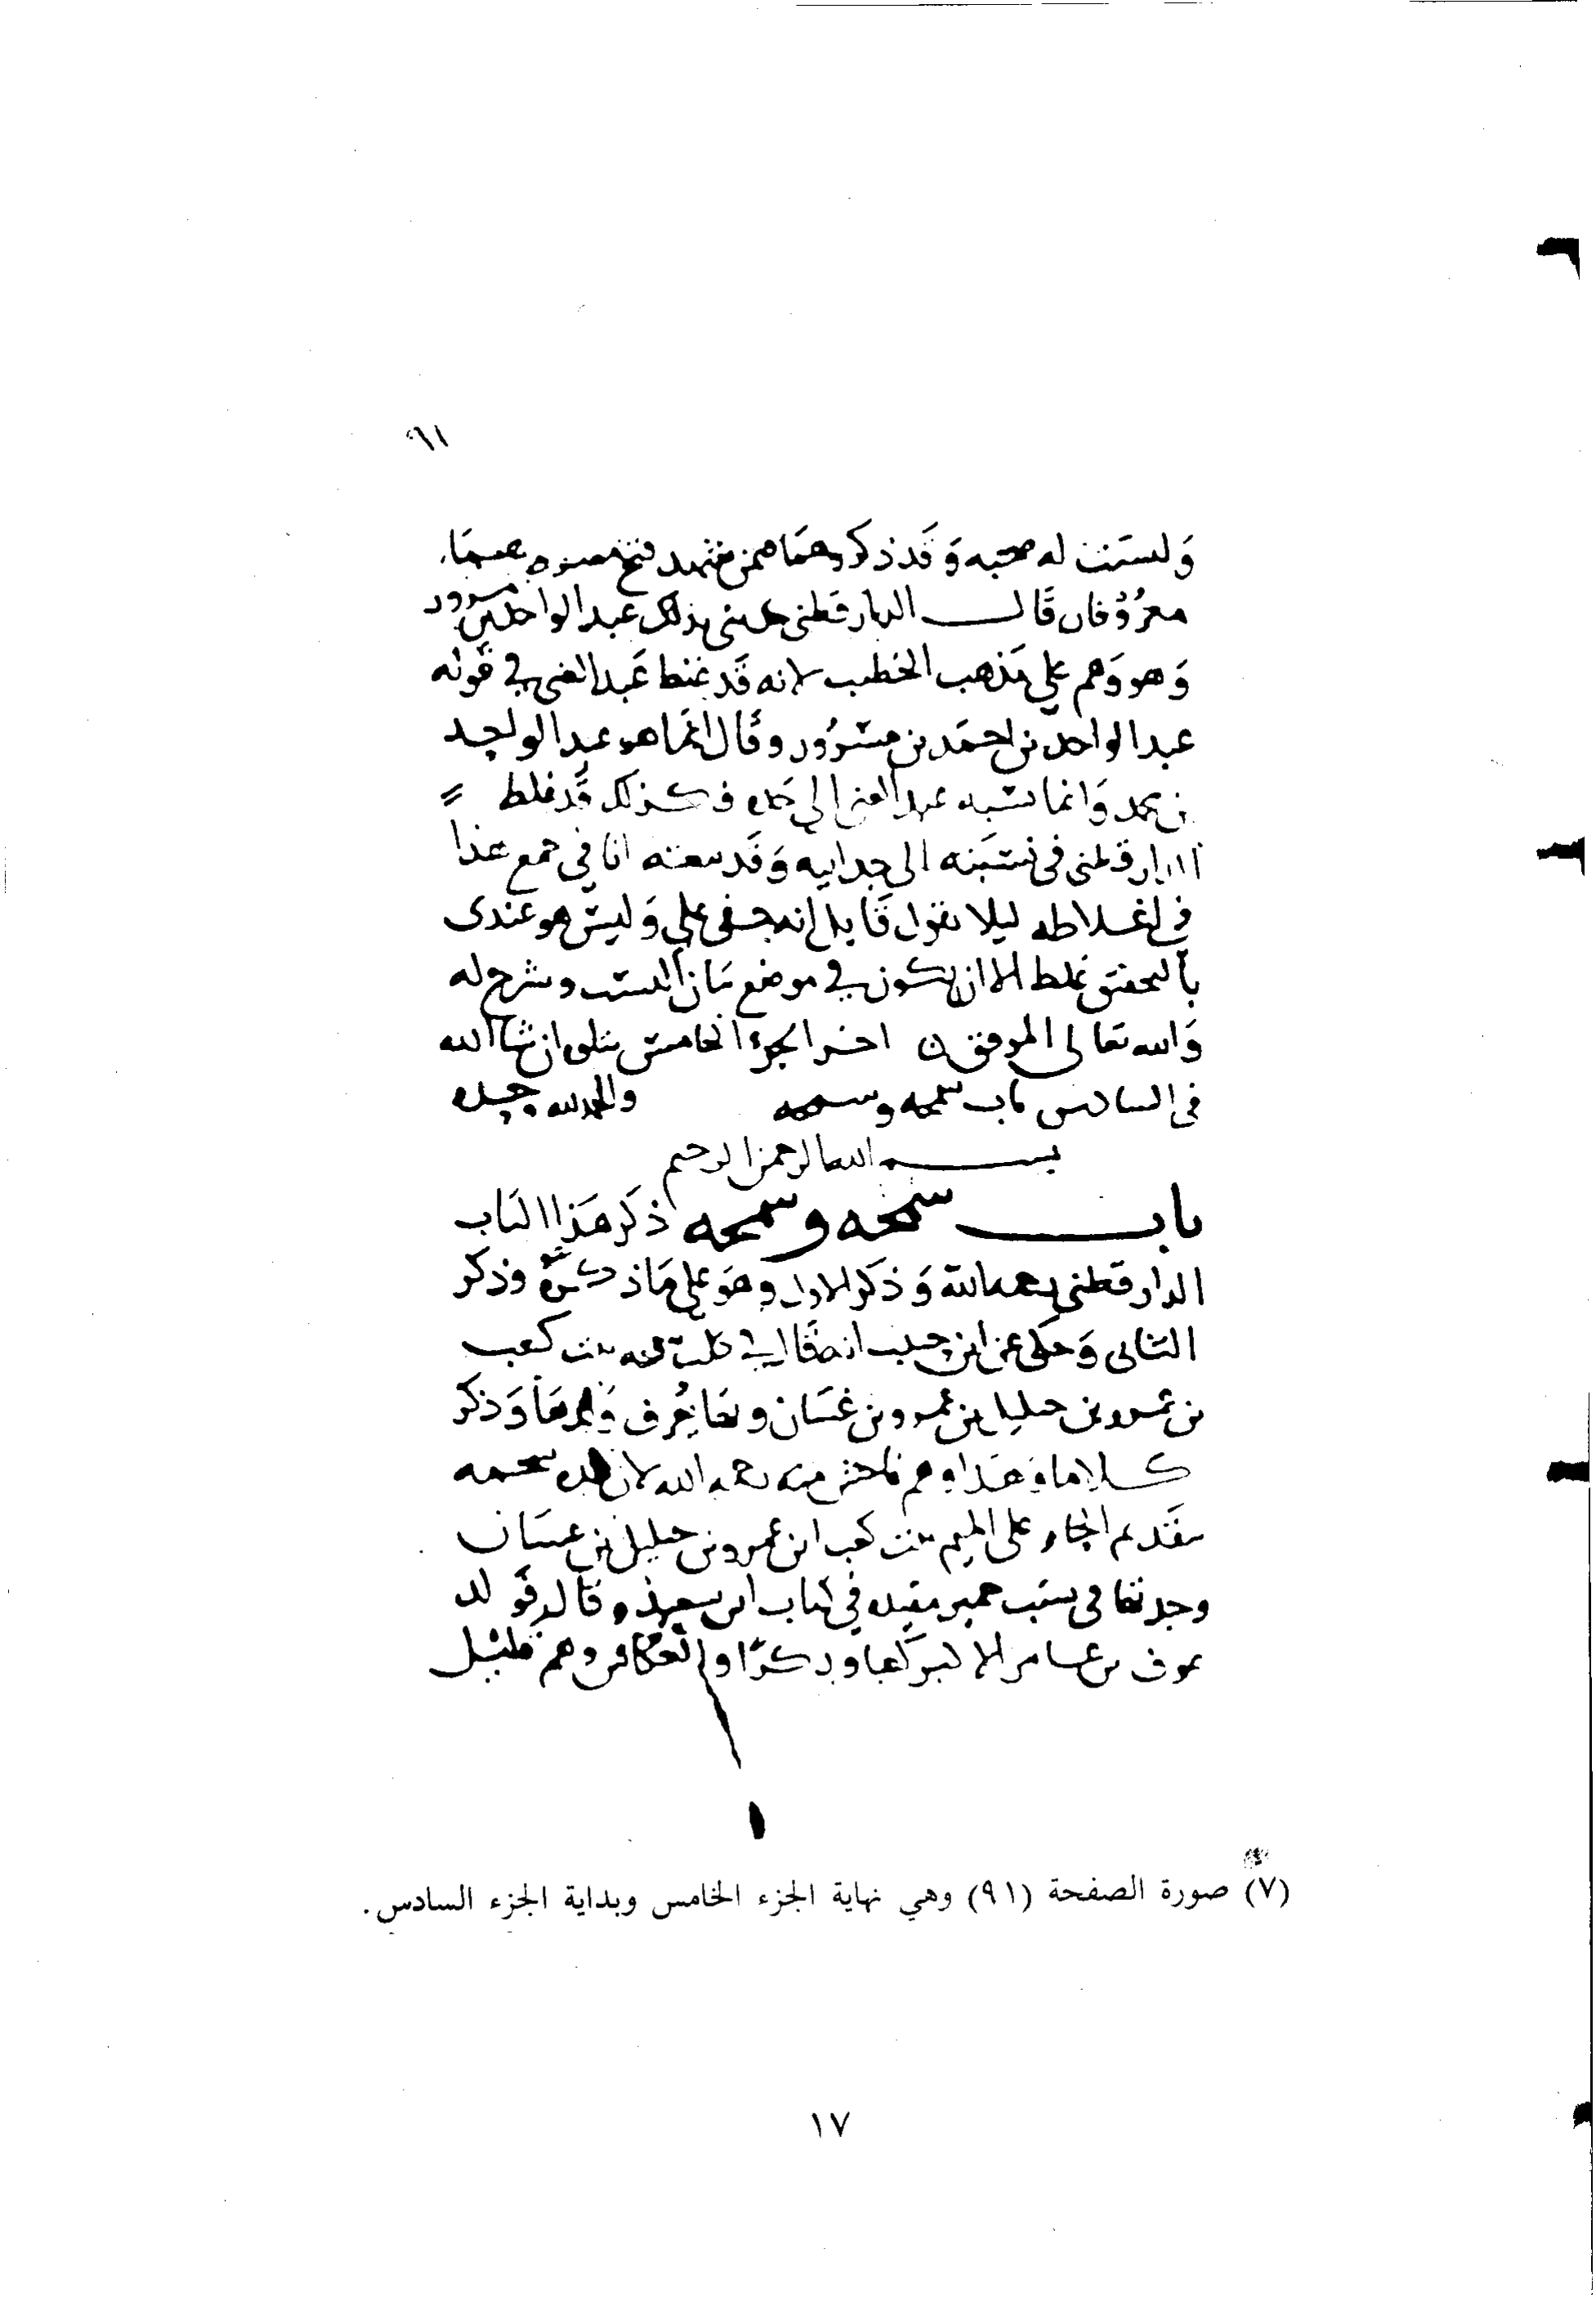 ٩١
وليست له صحبه وقد ذكروهما ممن شهد فتح مصر وهما
معروفان قال الدارقطني حدثني بذلك عبد الواحد بن مسرور
وهو وهم علي مذهب الخطيب لانه قد غلط عبد الغني في قوله
عبد الواحد بن احمد بن مسرور وقال انما هو عبد الواحد
بن محمد وانما نسبه عبد الغني الي جده فكذلك قد غلط
الدارقطني في نسبته الى جد ابيه وقد سقته انا في جمع هذا
في اغلاطه ليلا يقول قايل انه خفى علي وليس هو عندى
بالتحقيق غلط الا ان يكون في موضع بيان النسب وشرح له
والله تعالى الموفق اخر الجزء الخامس يتلوه ان شا الله
فى السادس باب سمحه وسمحه والحمد لله وحده
بسم الله الرحمن الرحيم
باب سمحه وسمحه ذكر هذا الباب
الدارقطني رحمه الله وذكر الاول وهو علي ما ذكره وذكر
الثانى وحكى عن ابن حبيب انه قال في بنت كعب
بن عمرو بن خليل بن عمرو بن غسان وبها يعرف ولدها وذكر
كلاما وهذا وهم فاحش منه رحمه الله لان هذه سحمه
بتقديم الحاء على الميم بنت كعب ابن عمرو بن خليل بن غسان
وجدتها في نسب حمير مقيده في كتاب ابن سعيد وقال فولد
عوف بن عامر الاكبر كعبا وبكرا والعكامس وهم قليل
(٧) صورة الصفحة (٩١) وهي نهاية الجزء الخامس وبداية الجزء السادس.
١٧